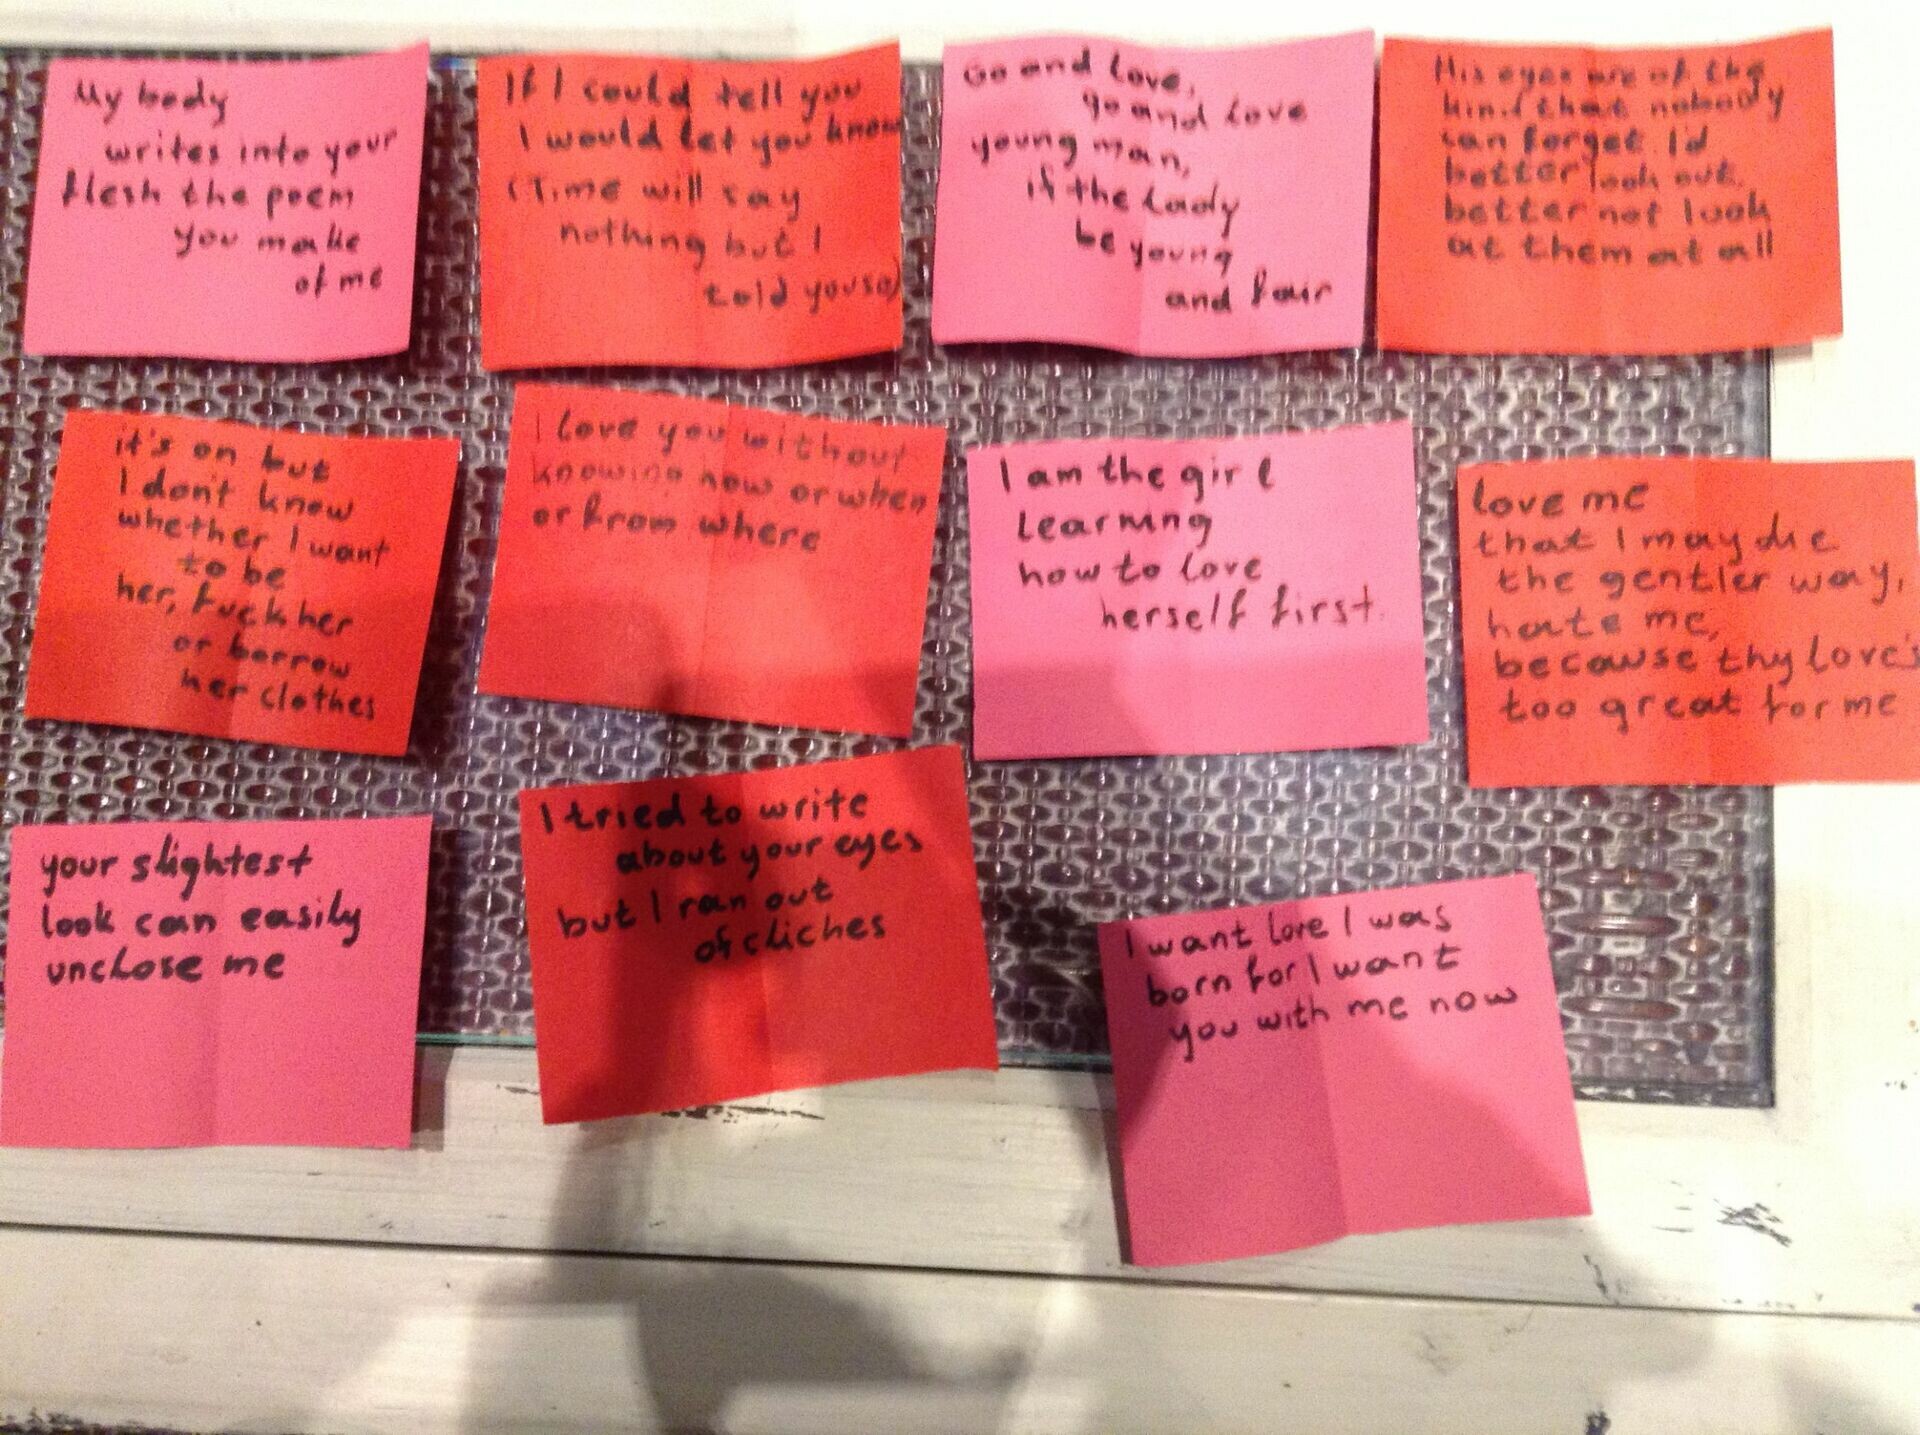 My body
writes into your
flesh the poem
you make
of me
If I could tell you
I would let you know
(Time will say
nothing but I
told you so)
Go and love,
go and love
young man,
if the lady
be young
and fair
His eyes are of the
kind that nobody
can forget I'd
better look out,
better not look
at them at all
it's on but
I don't know
whether I want
to be
her, fuck her
or borrow
her clothes
I love you without
knowing how or when
or from where
I am the girl
learning
how to love
herself first.
love me
that I may die
the gentler way,
hate me,
because thy love's
too great for me
your slightest
look can easily
unclose me
I tried to write
about your eyes
but I ran out
of cliches
I want love I was
born for I want
you with me now